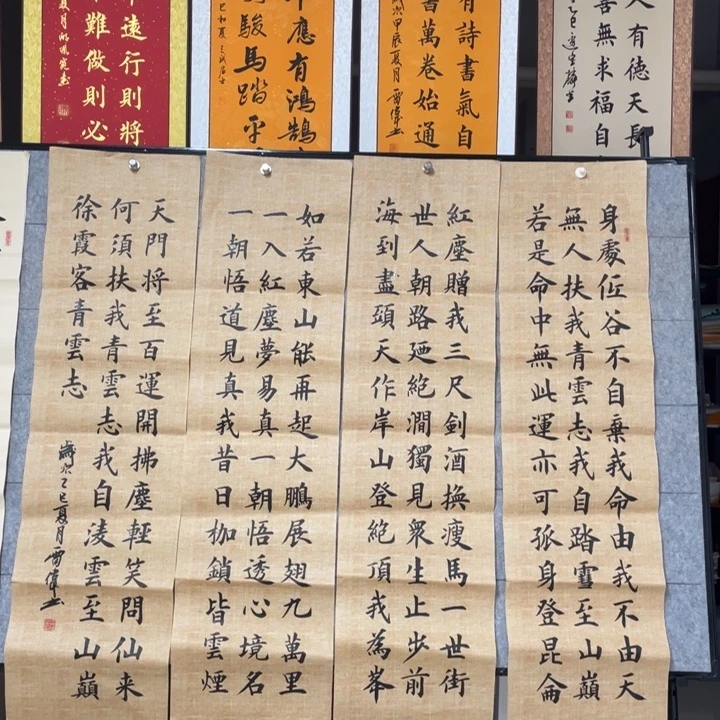 人有德天長
善無求福自
有詩書氣自
書萬卷始通
歲次甲辰夏月雷偉書
應有鴻鵠
駿馬踏平
遠行則將
難做則必
身處低谷不自棄我命由我不由天
無人扶我青雲志我自踏雪至山巔
若是命中無此運亦可孤身登昆侖
紅塵贈我三尺劍酒換瘦馬一世街
世人朝路廼絶澗獨見衆生止步前
海到盡頭天作岸山登絶頂我為峯
如若東山能再起大鵬展翅九萬里
一入紅塵夢易真一朝悟透心境名
一朝悟道見真我昔日枷鎖皆雲煙
天門將至百運開拂塵輕笑問仙来
何須扶我青雲志我自凌雲至山巔
徐霞客青雲志
歲次乙巳夏月雷偉書